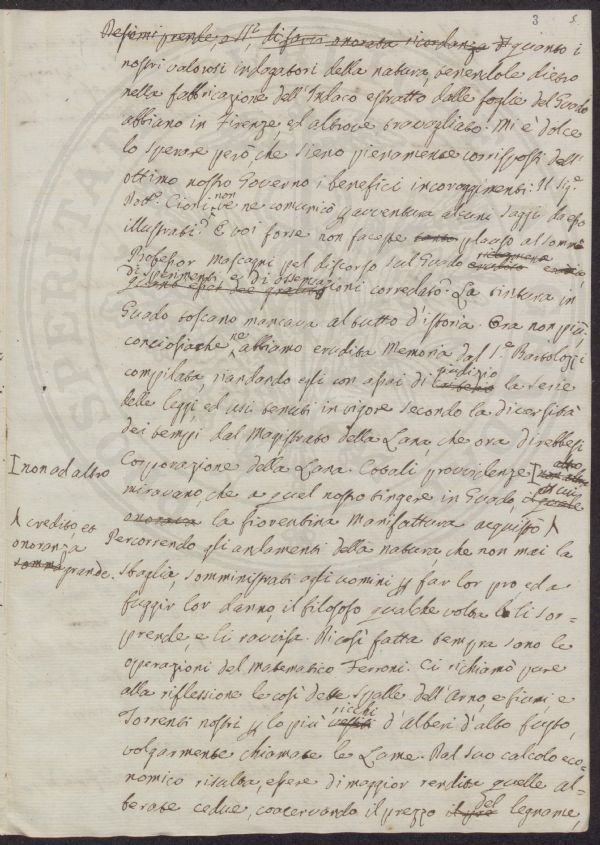 3 5.
Desìo mi prende, o SS.ri, di farvi onorata ricordanza di quanto i
nostri valorosi indagatori della natura, tenendole dietro
nella fabbricazione dell'Indaco estratto dalle foglie del Guado
abbiano in Firenze, ed altrove travagliato. Mi è dolce
lo sperare però che sieno pienamente corrisposti dell'
ottimo nostro Governo i benefici incoraggimenti. Il Sig.e
Dott.e Cioni non ve ne comunicò p avventura alcuni saggi da esso
illustrati? E voi forse non faceste tanto plauso al sommo
Professor Mascagni pel discorso sul Guado
di sperimenti e di osservazioni corredato. La tintura in
Guado toscano mancava al tutto d'istoria. Ora non più,
conciosiache ne abbiamo erudita Memoria dal S.e Bartolozzi
compilata, riandando egli con assai di giudizio la serie
delle leggi, ed usi tenuti in vigore secondo la diversità
dei tempi dal Magistrato della Lana, che ora direbbesi
Corporazione della Lana. Cotali provvidenze
[non ad altro
miravano, che a quel nostro tingere in Guado,
onorava la fiorentina Manifattura acquistò
credito, ed
onoranza
somma grande.
Percorrendo gli andamenti della natura, che non mai la
sbaglia, somministrati agli uomini p far lor pro ed a
fuggir lor danno, il filosofo qualche volta li sor-
prende, e li ravvisa. Di così fatta tempra sono le
operazioni del matematico Ferroni. Ci richiamò pure
alla riflessione le così dette spalle dell'Arno, e fiumi, e
Torrenti nostri p lo più ricchi vestiti d'alberi d'alto fusto,
volgarmente chiamate le Lame. Dal suo calcolo eco-
nomico risulta, essere di maggior rendita quelle al-
berate cedue, coacervando il prezzo del legname,